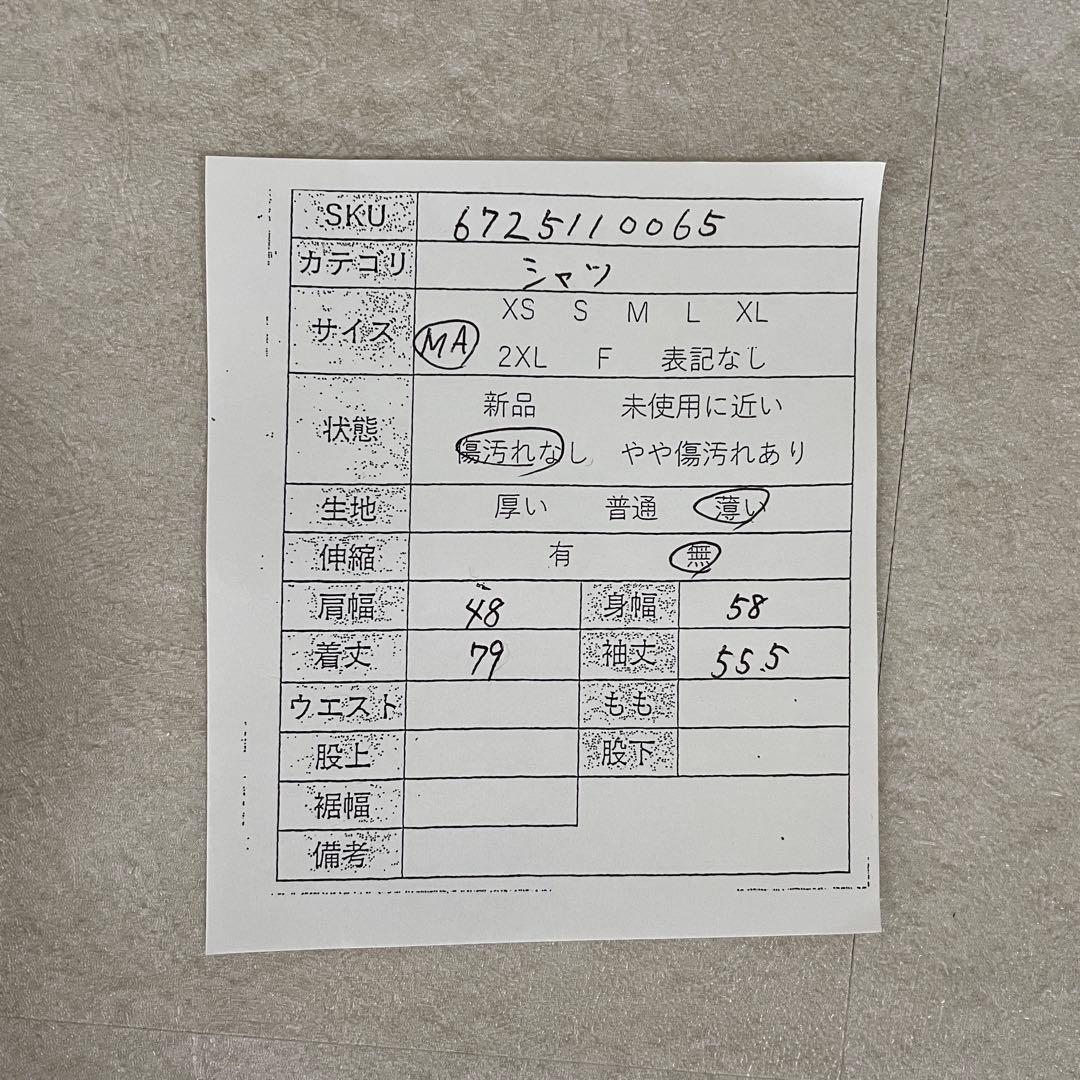 SKU 6725110065
カテゴリ シャツ
サイズ MA XS S M L XL
2XL F 表記なし
状態 新品 未使用に近い
傷汚れなし やや傷汚れあり
生地 厚い 普通 薄い
伸縮 有 無
肩幅 48 身幅 58
着丈 79 袖丈 55.5
ウエスト もも
股上 股下
裾幅
備考